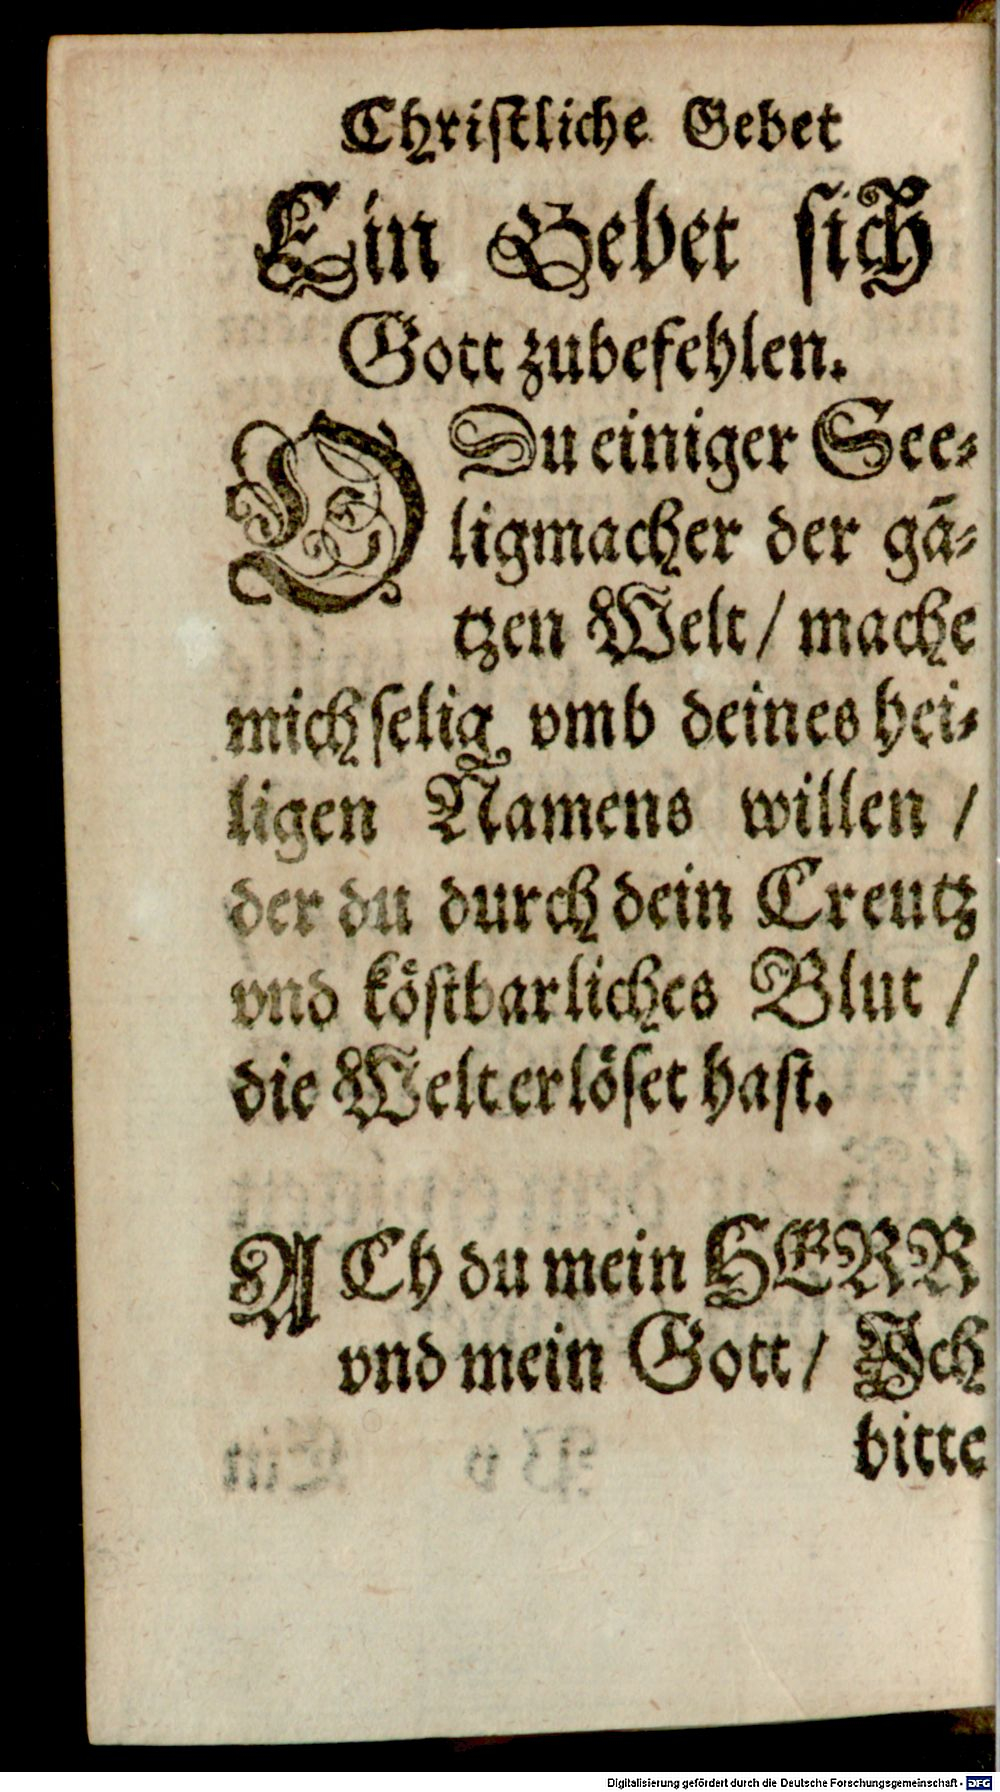 Christliche Gebet
Ein Gebet sich
Gott zubefehlen.
O Du einiger See-
ligmacher der gā-
tzen Welt / mache
mich selig vmb deines hei-
ligen Namens willen /
der du durch dein Creutz
vnd köstbarliches Blut /
die Welt erlöset hast.
ACh du mein HERR
vnd mein Gott / Ich
bitte
Digitalisierung gefördert durch die Deutsche Forschungsgemeinschaft - DFG